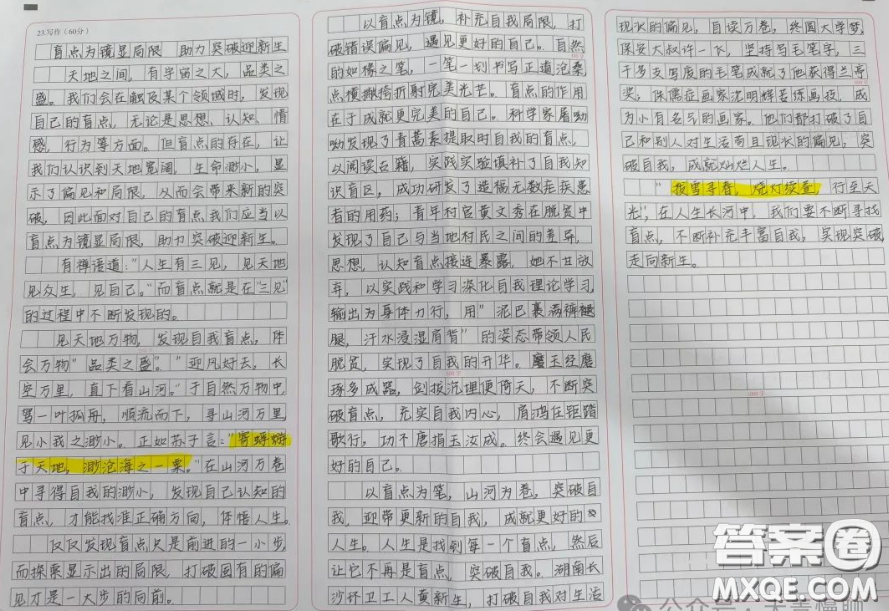 23.写作(60分)
盲点为镜显局限 助力突破迎新生
天地之间，有宇宙之大，品类之
盛。我们会在触及某个领域时，发现
自己的盲点，无论是思想、认知、情
感、行为等方面。但盲点的存在，让
我们认识到天地宽阔，生命渺小，显
示了偏见和局限，从而会带来新的突
破，因此面对自己的盲点我们应当以
盲点为镜显局限，助力突破迎新生。
有禅语道："人生有三见，见天地
见众生，见自己。"而盲点就是在"三见"
的过程中不断发现的。
见天地万物，发现自我盲点，体
会万物"品类之盛"。"迎风好去，长
空万里，直下看山河。"于自然万物中，
驾一叶孤舟，顺流而下，寻山河万里
见小我之渺小。正如苏子言："寄蜉蝣
于天地，渺沧海之一粟。"在山河万卷
中寻得自我的渺小，发现自己认知的
盲点，才能找准正确方向，体悟人生。
仅仅发现盲点只是前进的一小步，
而探索显示出的局限，打破固有的偏
见才是一大步的向前。
以盲点为镜，补充自我局限，打
破错误偏见，遇见更好的自己。自然
的如椽之笔，一笔一划书写正道沧桑
点横撇捺折射完美光芒。盲点的作用
在于成就更完美的自己。科学家屠呦
呦发现了青蒿素提取时自我的盲点，
以阅读古籍，实践实验填补了自我知
识盲区，成功研发了造福无数疟疾患
者的用药；青年村官黄文秀在脱贫中
发现了自己与当地村民之间的差异，
思想，认知盲点接连暴露，她不甘放
弃，以实践和学习深化自我理论学习，
输出为身体力行，用"泥巴裹满裤腿
腿，汗水浸湿肩背"的姿态带领人民
脱贫，实现了自我的升华。磨玉经磨
琢多成器，剑拔沉埋便倚天，不断突
破盲点，充实自我内心，肩鸿任钜踏
歌行，功不唐捐玉汝成。终会遇见更
好的自己。
以盲点为笔，山河为卷，突破自
我，迎带更新的自我，成就更好的
人生。人生是找到每一个盲点，然后
让它不再是盲点，突破自我。湖南长
沙环卫工人黄新生，打破自我对生活
现状的偏见，自读万卷，终圆大学梦，
保安大叔许一飞，坚持写毛笔字，三
千多支写废的毛笔成就了他获得兰亭
奖；保儒症画家沈明辉苦练画技，成
为小有名气的画家。他们都打破了自
己和别人对生活苟且现状的偏见，突
破自我，成就灿烂人生。
"拨雪寻春，烧灯续昼，行至天
光"，在人生长河中，我们要不断寻找
盲点，不断补充丰富自我，实现突破
走向新生。
答案圈
MXQE.COM
公众号